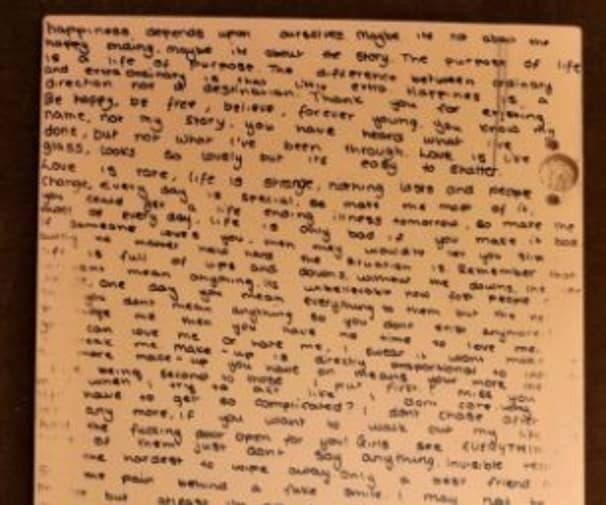 happiness depends upon ourselves maybe its not about the
happy ending, maybe its about the story. The purpose of life
is a life of purpose. The difference between ordinary
and extraordinary is that little extra Happiness is a
direction not a destination. Thank you for existing.
Be happy, be free, believe, forever young. You know my
name, not my story, you have heard what I've
done, but not what I've been through. Love is like
glass, looks so lovely but its easy to shatter.
Love is rare, life is strange, nothing lasts and people
change, every day is special, so make the most of it.
you could get a life ending illness tomorrow, so make the
most of every day. Life is only bad if you make it bad
if someone loves you, then they wouldn't let you slip
no matter how hard the situation is. Remember that
life is full of ups and downs, without the downs, the
mean anything. its unbelievable how fast people
one day you mean everything to them but the
you dont mean anything so you dont anymore.
me then you have no time to love me.
can love me or hate me, I swear it wont
me. make-up is directly proportional to
more make-up you have on means your more
being second to those I put first. I miss you
when I try to life, I dont care why
have to get so complicated? I dont chase after
any more, if you want to walk out my life
the fucking door open for you! Girls see EVERYTHING
of them just dont say anything. invisible
the hardest to wipe away only a best friend
the pain behind a fake smile. I may not be
but atleast